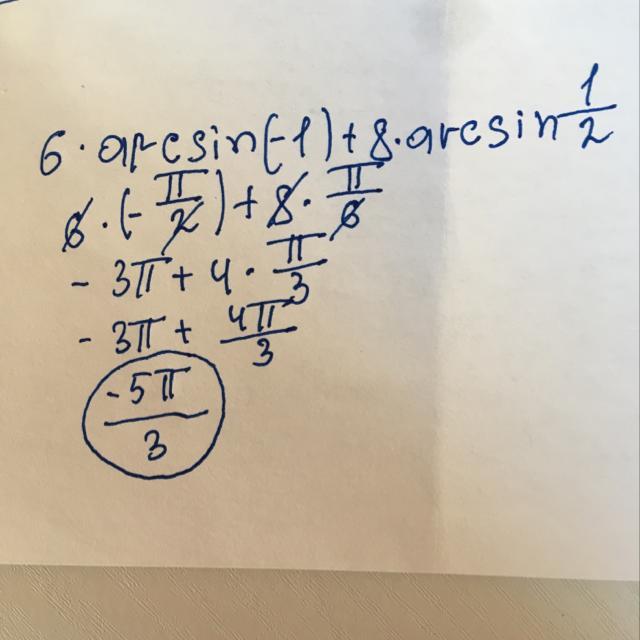 6 · arcsin(-1) + 8 · arcsin 1/2
6 · (-π/2) + 8 · π/6
- 3π + 4 · π/3
- 3π + 4π/3
-5π/3